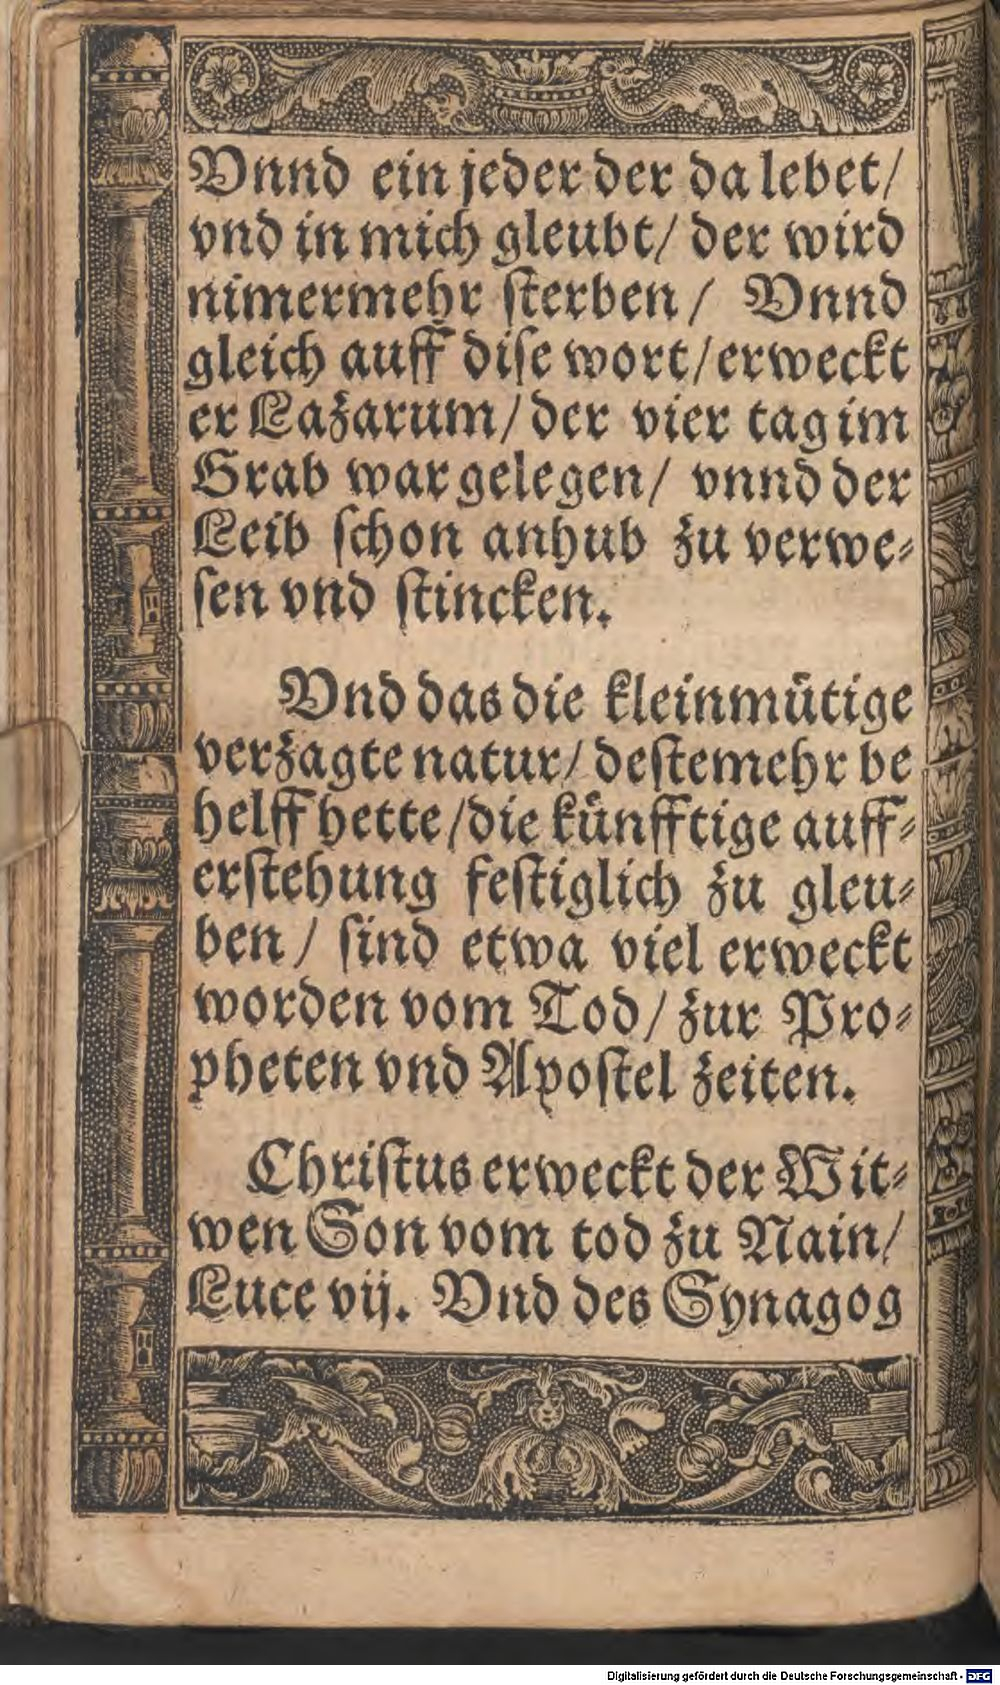 Vnnd ein jeder der da lebet/
vnd in mich gleubt/ der wird
nimermehr ſterben/ Vnnd
gleich auff diſe wort/erweckt
er Lazarum/der vier tag im
Grab war gelegen/ vnnd der
Leib ſchon anhub zu verwe⸗
ſen vnd ſtincken.
Vnd das die kleinmütige
verzagte natur/ deſtemehr be
helff hette/die künfftige auff⸗
erſtehung feſtiglich zu gleu⸗
ben/ ſind etwa viel erweckt
worden vom Tod/ zur Pro⸗
pheten vnd Apoſtel zeiten.
Chriſtus erweckt der Wit⸗
wen Son vom tod zu Nain/
Luce vij. Vnd des Synagog
Digitalisierung gefördert durch die Deutsche Forschungsgemeinschaft - DFG